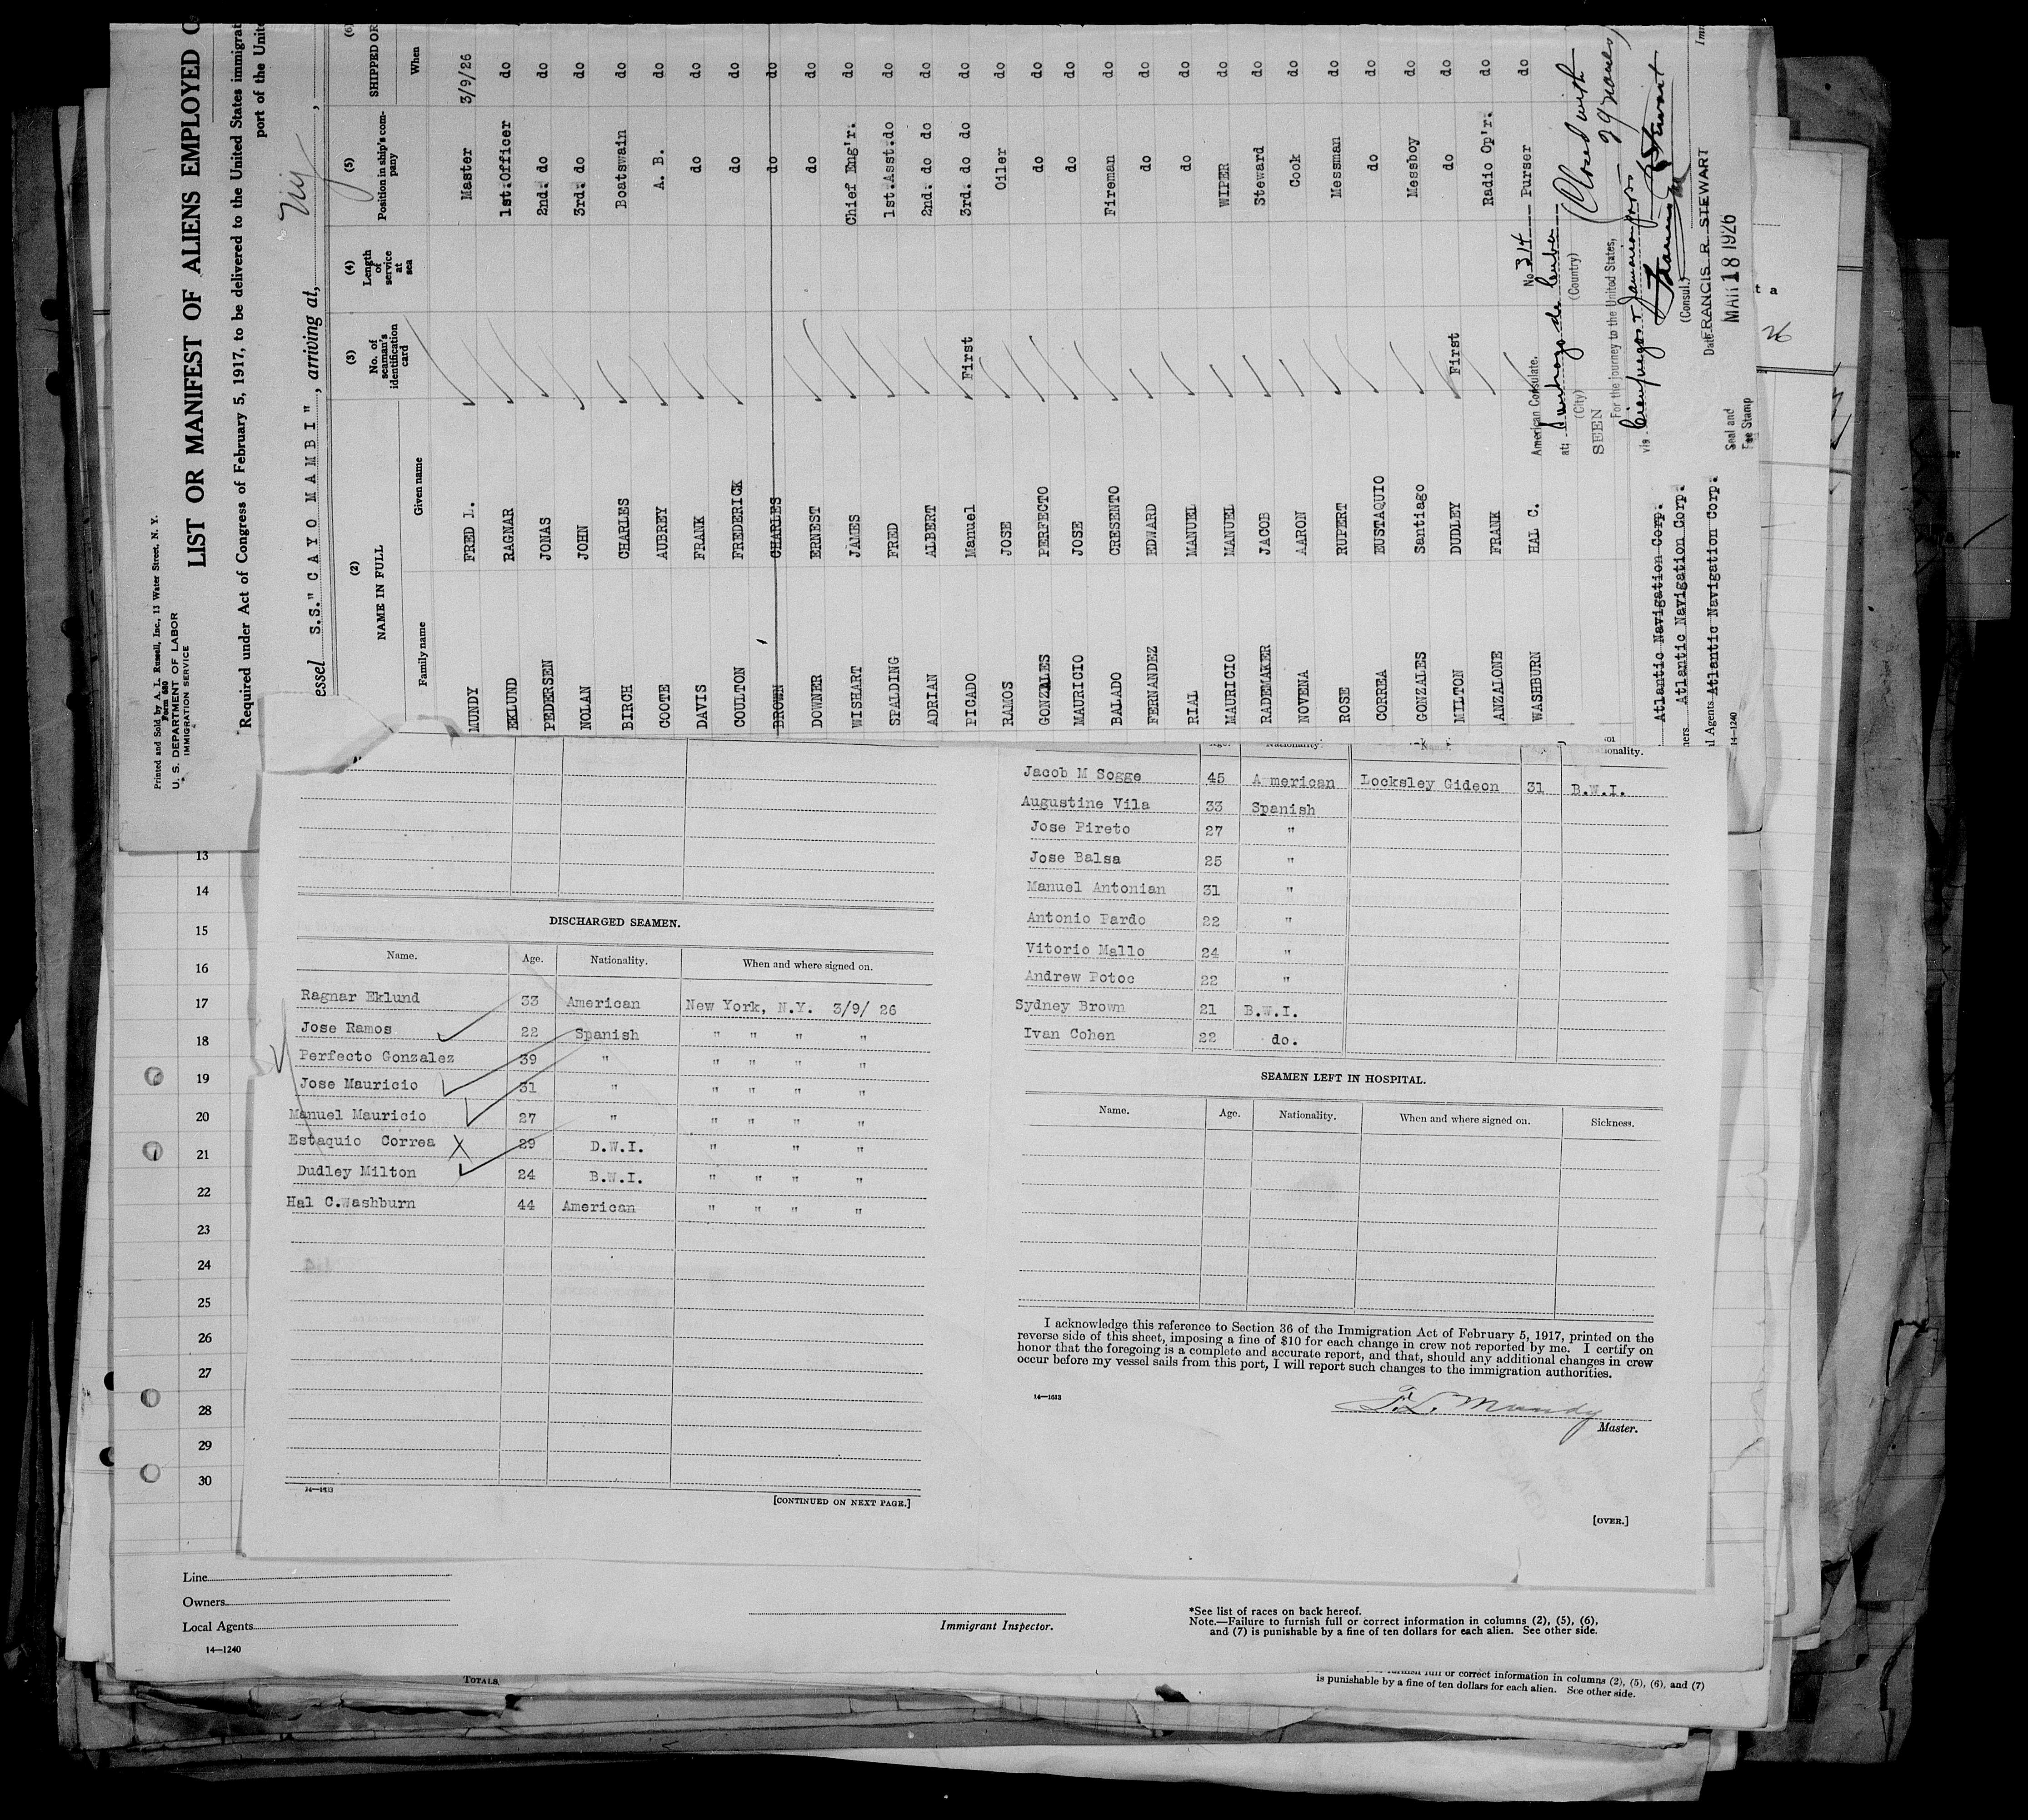 Printed and Sold by A. L. Russell, Inc., 13 Water Street, N. Y.
Form 680
U. S. DEPARTMENT OF LABOR
IMMIGRATION SERVICE
LIST OR MANIFEST OF ALIENS EMPLOYED
Required under Act of Congress of February 5, 1917, to be delivered to the United States immigrat
port of the Unit
essel S.S." C A Y O M A M B I ", arriving at,
(2) (3) (4) (5) (6)
NAME IN FULL No. of seaman's identification card Length of service at sea Position in ship's company SHIPPED OR
Family name Given name When
MUNDY FRED L. Master 3/9/26
EKLUND RAGNAR 1st.Officer do
PEDERSEN JONAS 2nd. do do
NOLAN JOHN 3rd. do do
BIRCH CHARLES Boatswain do
COOTE AUBREY A. B. do
DAVIS FRANK do do
COULTON FREDERICK do do
BROWN CHARLES do do
DOWNER ERNEST do do
WISHART JAMES Chief Eng'r. do
SPALDING FRED 1st.Asst.do do
ADRIAN ALBERT 2nd. do do do
PICADO Manuel First 3rd. do do do
RAMOS JOSE Oiler do
GONZALES PERFECTO do do
MAURICIO JOSE do do
BALADO CRESENTO Fireman do
FERNANDEZ EDWARD do do
RIAL MANUEL do do
MAURICIO MANUEL WIPER do
RADEMAKER JACOB Steward do
NOVENA AARON Cook do
ROSE RUPERT Messman do
CORREA EUSTAQUIO do do
GONZALES Santiago Messboy do
MILTON DUDLEY First do do
ANZALONE FRANK Radio Op'r. do
WASHBURN HAL C. Purser do
American Consulate. No 314
at: Santiago de Cuba
(City) (Country)
SEEN
For the journey to the United States,
via Cienfuegos & Jamaica
Closed with 29 names
(Consul.)
FRANCIS R STEWART
Date MAR 18 1926
Seal and
Fee Stamp
Atlantic Navigation Corp.
ners. Atlantic Navigation Corp.
l Agents. Atlantic Navigation Corp.
14-1240
26
13
14
15
16
17
18
19
20
21
22
23
24
25
26
27
28
29
30
DISCHARGED SEAMEN.
Name. Age. Nationality. When and where signed on.
Ragnar Eklund 33 American New York, N.Y. 3/9/ 26
Jose Ramos 22 Spanish " " " "
Perfecto Gonzalez 39 " " " " "
Jose Mauricio 31 " " " " "
Manuel Mauricio 27 " " " " "
Estaquio Correa X 29 D.W.I. " " "
Dudley Milton 24 B.W.I. " " " "
Hal C.Washburn 44 American " " " "
14-1613
[CONTINUED ON NEXT PAGE.]
Jacob M Sogge 45 American Locksley Gideon 31 B.W.I.
Augustine Vila 33 Spanish
Jose Pireto 27 "
Jose Balsa 25 "
Manuel Antonian 31 "
Antonio Pardo 22 "
Vitorio Mallo 24 "
Andrew Potoc 22 "
Sydney Brown 21 B.W.I.
Ivan Cohen 22 do.
SEAMEN LEFT IN HOSPITAL.
Name. Age. Nationality. When and where signed on. Sickness.
I acknowledge this reference to Section 36 of the Immigration Act of February 5, 1917, printed on the
reverse side of this sheet, imposing a fine of $10 for each change in crew not reported by me. I certify on
honor that the foregoing is a complete and accurate report, and that, should any additional changes in crew
occur before my vessel sails from this port, I will report such changes to the immigration authorities.
14-1613
F. L. Mundy
Master.
[OVER.]
Line
Owners
Local Agents
14-1240
Immigrant Inspector.
*See list of races on back hereof.
Note.—Failure to furnish full or correct information in columns (2), (5), (6),
and (7) is punishable by a fine of ten dollars for each alien. See other side.
TOTALS
full or correct information in columns (2), (5), (6), and (7)
is punishable by a fine of ten dollars for each alien. See other side.